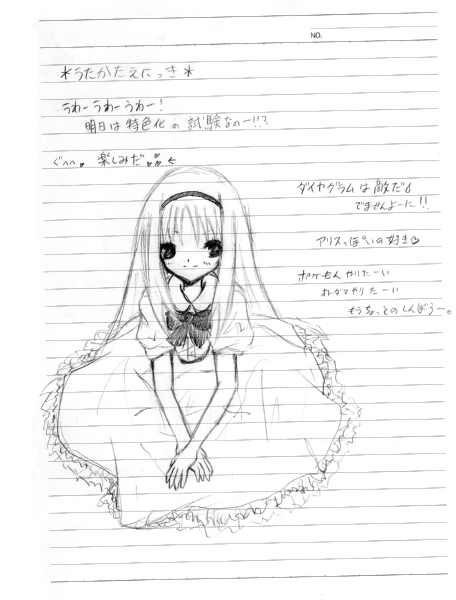 NO.
*うたかたえにっき*
うわーうわーうわー!
明日は特色化の試験なのー!!?
ぐへへ。楽しみだ
ダイヤグラムは敵だ♪
でませんよーに!!
アリスっぽいの好き♡
ポケもんやりたーい
オトダマやりたーい
もうちょっとのしんぼうー。